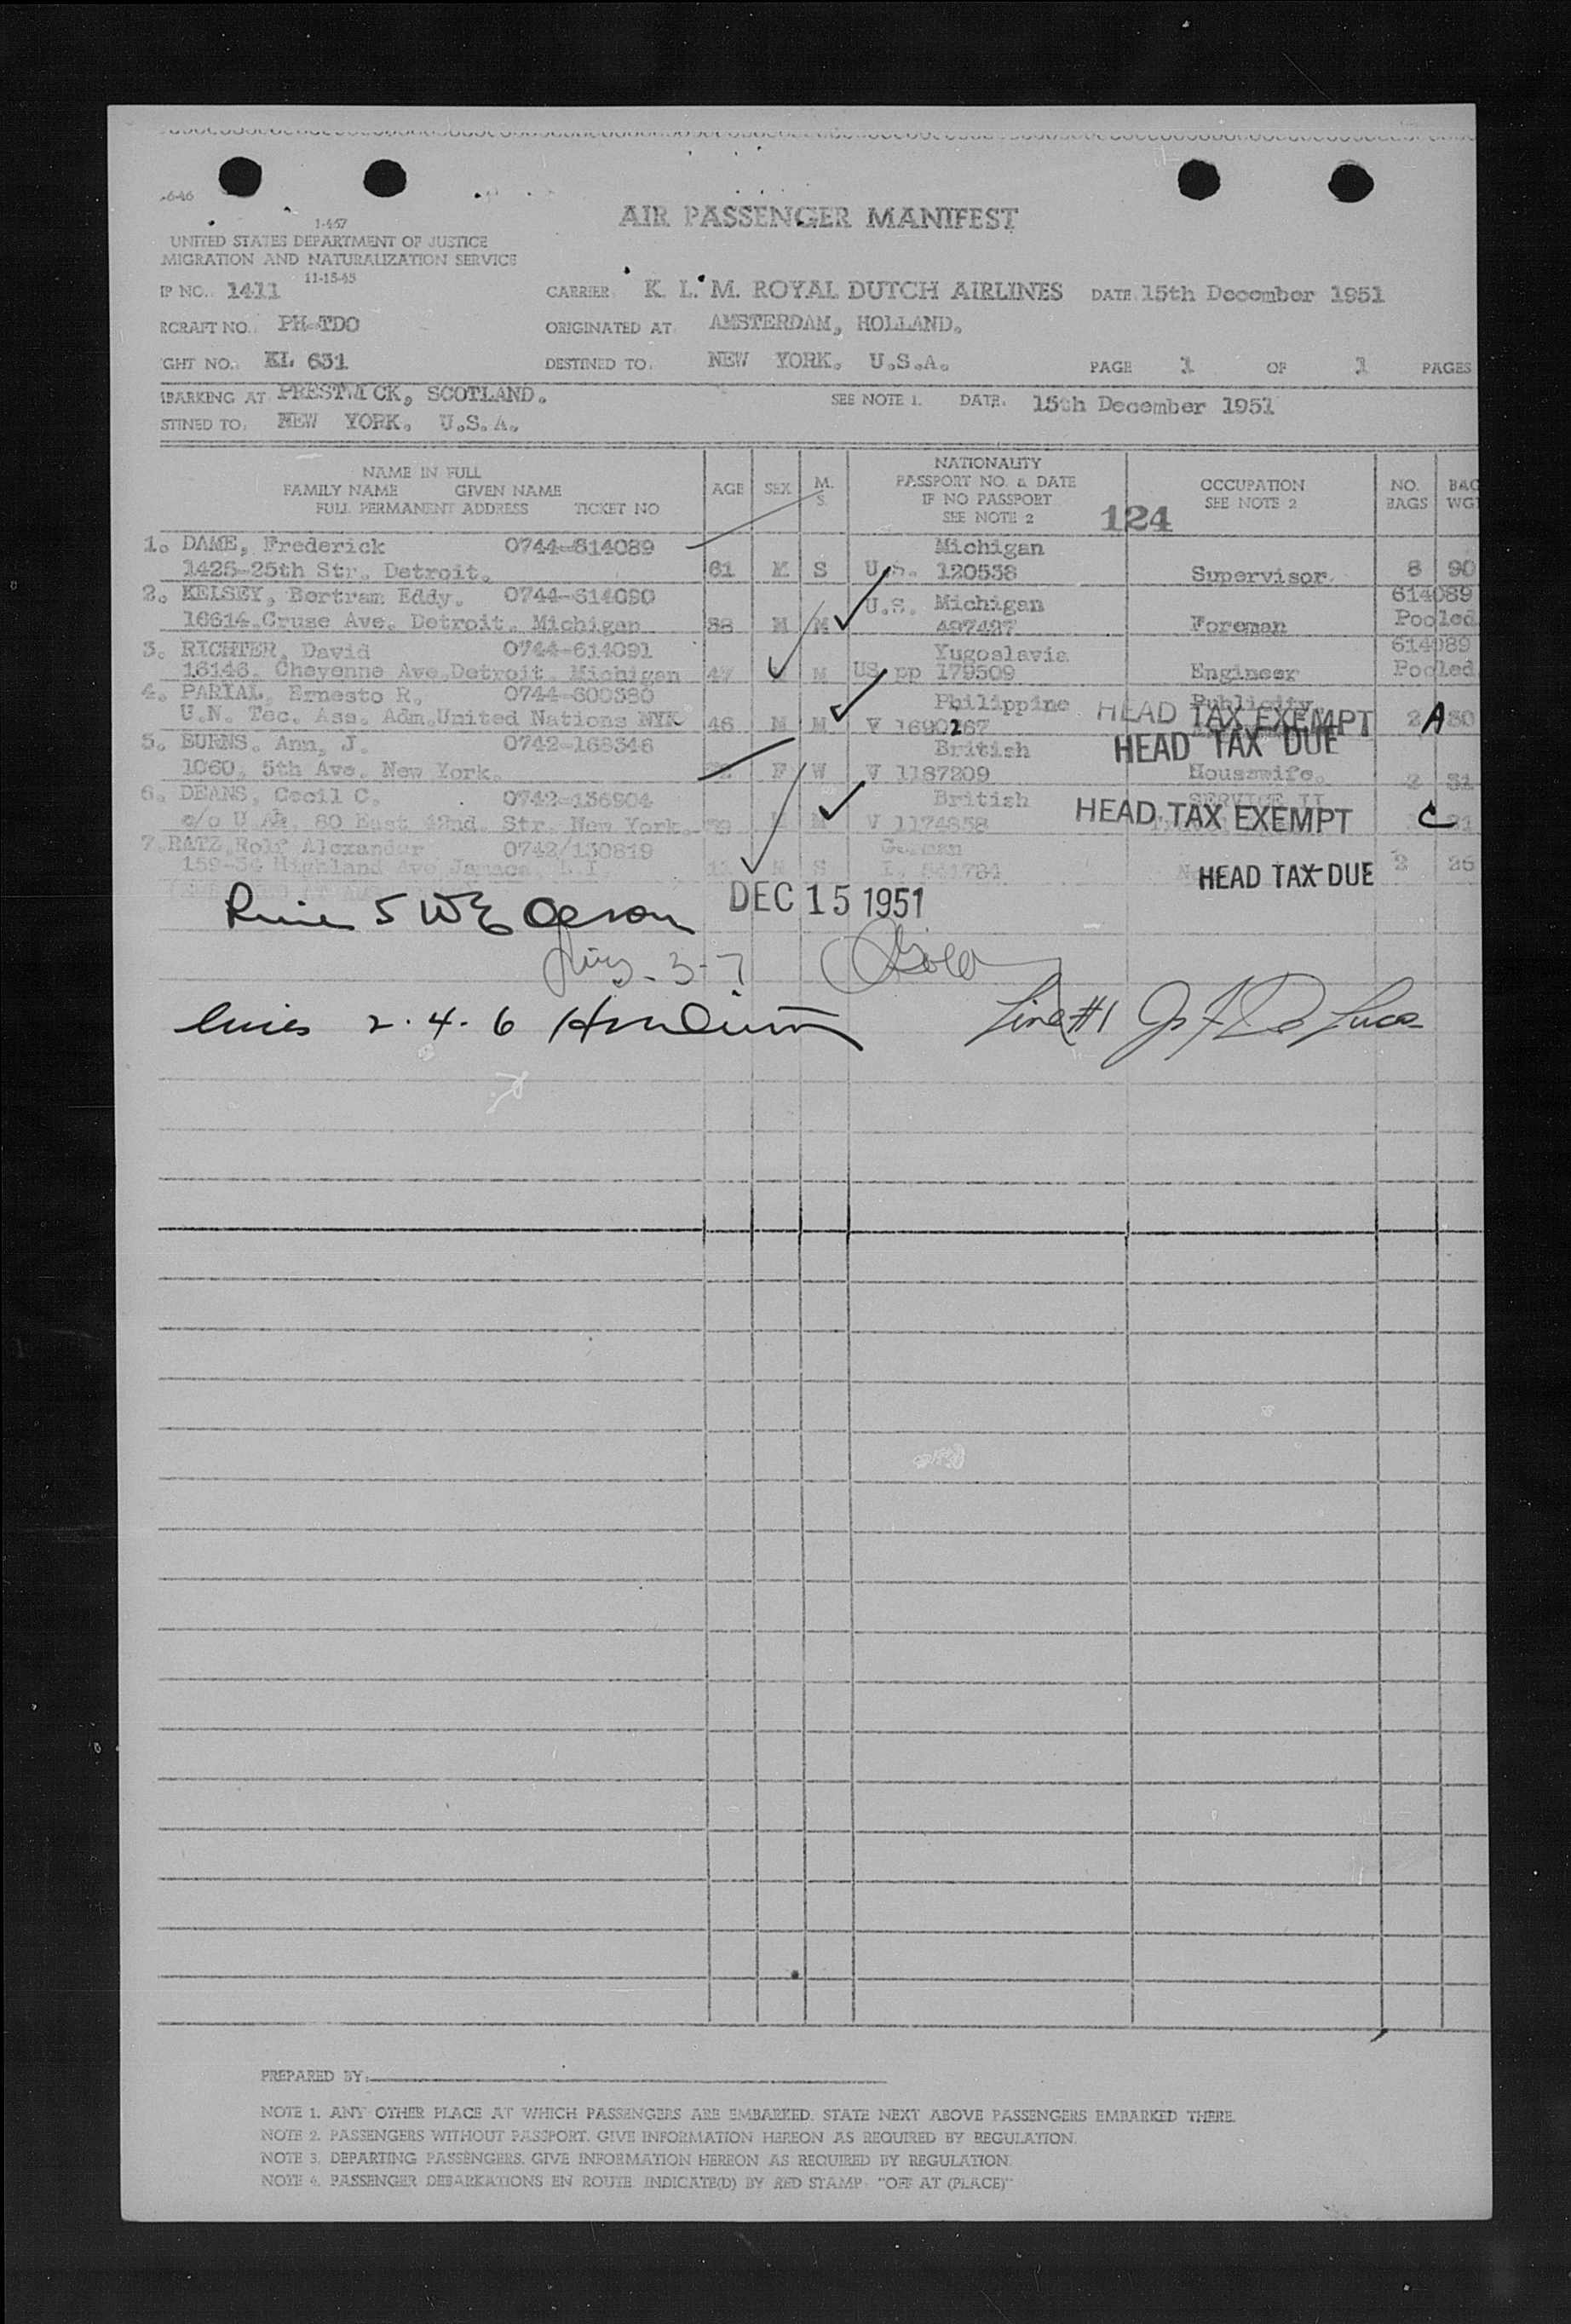 -6-46
AIR PASSENGER MANIFEST
1-457
UNITED STATES DEPARTMENT OF JUSTICE
MIGRATION AND NATURALIZATION SERVICE
11-15-45
IP NO. 1411 CARRIER K. L. M. ROYAL DUTCH AIRLINES DATE 15th December 1951
RCRAFT NO. PH-TDO ORIGINATED AT AMSTERDAM, HOLLAND.
GHT NO. KL 631 DESTINED TO NEW YORK. U.S.A. PAGE 1 OF 1 PAGES
BARKING AT PRESTWICK, SCOTLAND. SEE NOTE 1. DATE. 15th December 1951
STINED TO. NEW YORK. U.S.A.
NAME IN FULL
FAMILY NAME GIVEN NAME
FULL PERMANENT ADDRESS TICKET NO
AGE SEX M. S.
NATIONALITY
PASSPORT NO. & DATE
IF NO PASSPORT
SEE NOTE 2
OCCUPATION
SEE NOTE 2
NO. BAGS
BAG WGT
124
1. DAME, Frederick 0744-614089 Michigan
1425-25th Str. Detroit. 61 M S U.S. 120538 Supervisor. 8 90
2. KELSEY, Bertram Eddy. 0744-614090 U.S. Michigan 614089
16614.Cruse Ave. Detroit. Michigan 38 M M 497427 Foreman Pooled
3. RICHTER, David 0744-614091 Yugoslavia 614089
16146. Cheyenne Ave.Detroit. Michigan 47 M US pp 179509 Engineer Pooled
4. PARIAL, Ernesto R. 0744-600380 Philippine Publicity
U.N. Tec. Ass. Adm.United Nations NYK 46 M M V 1690267 HEAD TAX EXEMPT 2 A 30
5. BURNS. Ann, J. 0742-168346 British HEAD TAX DUE
1060, 5th Ave. New York. F W V 1187209 Housewife. 2 31
6. DEANS, Cecil C. 0742-136904 British
c/o U.A. 80 East 42nd. Str. New York. 39 M V 1174858 HEAD TAX EXEMPT C 21
7.RATZ,Rolf Alexander 0742/130819 German
159-34 Highland Ave Jamaca, L.I M S HEAD TAX DUE 2 25
DEC 15 1951
5
3-7
lines 2.4.6
Line #1
PREPARED BY:
NOTE 1. ANY OTHER PLACE AT WHICH PASSENGERS ARE EMBARKED. STATE NEXT ABOVE PASSENGERS EMBARKED THERE.
NOTE 2. PASSENGERS WITHOUT PASSPORT. GIVE INFORMATION HEREON AS REQUIRED BY REGULATION.
NOTE 3. DEPARTING PASSENGERS. GIVE INFORMATION HEREON AS REQUIRED BY REGULATION.
NOTE 4. PASSENGER DEBARKATIONS EN ROUTE INDICATE(D) BY RED STAMP: "OFF AT (PLACE)"